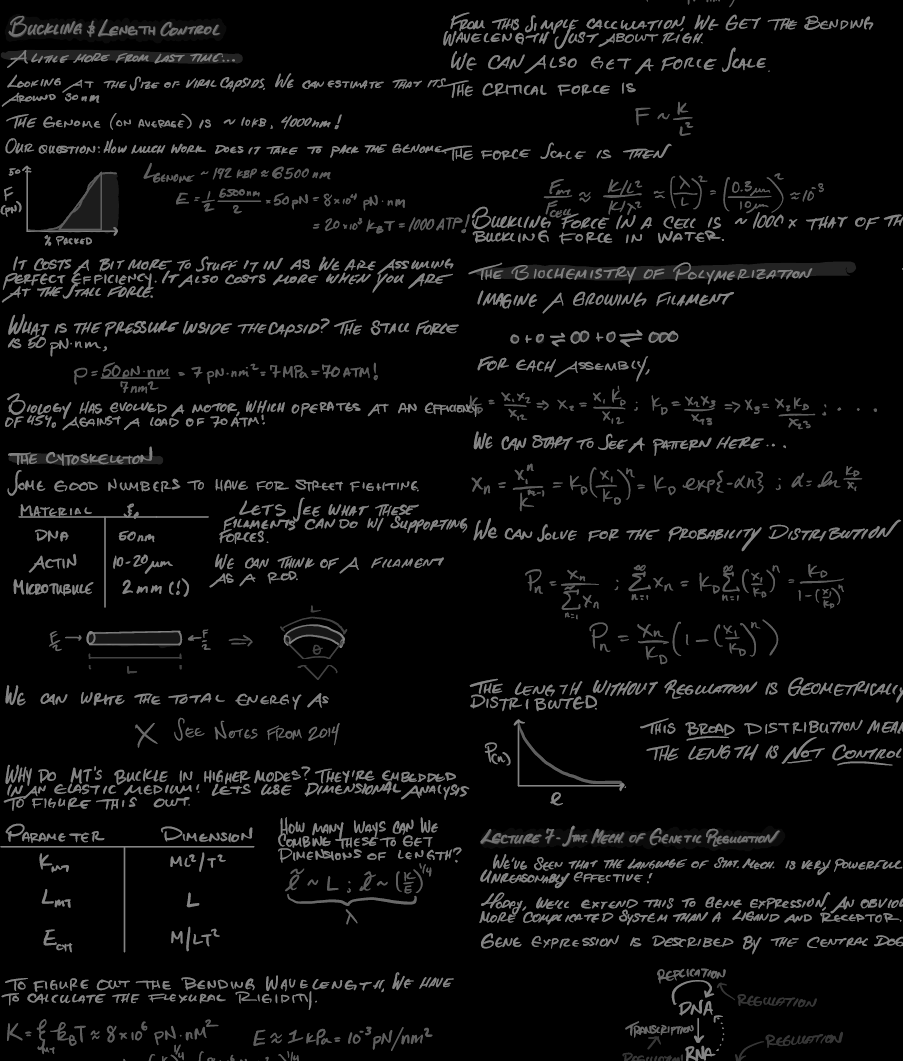 BUCKLING & LENGTH CONTROL
A LITTLE MORE FROM LAST TIME...
LOOKING AT THE SIZE OF VIRAL CAPSIDS, WE CAN ESTIMATE THAT ITS
AROUND 30nm
THE GENOME (ON AVERAGE) IS ~10KB, 4000nm!
OUR QUESTION: HOW MUCH WORK DOES IT TAKE TO PACK THE GENOME.
50
F
(pN)
% PACKED
L GENOME ~ 192 KBP ≈ 6500 nm
E = 1/2 6500nm/2 × 50 pN = 8×10⁴ pN·nm
= 20×10³ kBT = 1000 ATP!
IT COSTS A BIT MORE TO STUFF IT IN AS WE ARE ASSUMING
PERFECT EFFICIENCY. IT ALSO COSTS MORE WHEN YOU ARE
AT THE STALL FORCE.
WHAT IS THE PRESSURE INSIDE THE CAPSID? THE STALL FORCE
IS 50 pN·nm,
P = 50pN·nm/7nm² = 7 pN·nm² = 7 MPa = 70 ATM!
BIOLOGY HAS EVOLVED A MOTOR, WHICH OPERATES AT AN EFFICIENCY
OF 45% AGAINST A LOAD OF 70 ATM!
THE CYTOSKELETON
SOME GOOD NUMBERS TO HAVE FOR STREET FIGHTING.
MATERIAL ξp
DNA 50nm
ACTIN 10-20 μm
MICROTUBULE 2 mm (!)
LETS SEE WHAT THESE
FILAMENTS CAN DO W/ SUPPORTING
FORCES.
WE CAN THINK OF A FILAMENT
AS A ROD.
F/2 → ← F/2 ⇒
L
L
θ
WE CAN WRITE THE TOTAL ENERGY AS
X SEE NOTES FROM 2014
WHY DO MT'S BUCKLE IN HIGHER MODES? THEY'RE EMBEDDED
IN AN ELASTIC MEDIUM! LETS USE DIMENSIONAL ANALYSIS
TO FIGURE THIS OUT.
PARAMETER DIMENSION
K MT ML²/T²
L MT L
E CYT M/LT²
HOW MANY WAYS CAN WE
COMBINE THESE TO GET
DIMENSIONS OF LENGTH?
ℓ̃ ~ L ; ℓ̃ ~ (K/E)^1/4
λ
TO FIGURE OUT THE BENDING WAVELENGTH, WE HAVE
TO CALCULATE THE FLEXURAL RIGIDITY.
K = ξ MT kBT ≈ 8×10⁶ pN·nm² E ≈ 1 kPa = 10⁻³ pN/nm²
FROM THIS SIMPLE CALCULATION, WE GET THE BENDING
WAVELENGTH JUST ABOUT RIGH.
WE CAN ALSO GET A FORCE SCALE.
THE CRITICAL FORCE IS
F ~ K/L²
THE FORCE SCALE IS THEN
F MT/F CELL ≈ K/L²/K/λ² ≈ (λ/L)² = (0.3μm/10μm)² ≈ 10⁻³
BUCKLING FORCE IN A CELL IS ~1000x THAT OF TH
BUCKLING FORCE IN WATER.
THE BIOCHEMISTRY OF POLYMERIZATION
IMAGINE A GROWING FILAMENT
o + o ⇌ oo + o ⇌ ooo
FOR EACH ASSEMBLY,
= x₁x₂/x₁₂ ⇒ x₂ = x₁KD/x₁₂ ; KD = x₂x₃/x₂₃ ⇒ x₃ = x₂KD/x₂₃ ; . . . .
WE CAN START TO SEE A PATTERN HERE...
xn = x₁ⁿ/Kⁿ⁻¹ = KD(x₁/KD)ⁿ = KD exp{-αn} ; α = ln KD/x₁
WE CAN SOLVE FOR THE PROBABILITY DISTRIBUTION
Pn = xn/Σxn ; Σxn = KD Σ(x₁/KD)ⁿ = KD/1-(x₁/KD)ⁿ
Pn = xn/KD (1-(x₁/KD)ⁿ)
THE LENGTH WITHOUT REGULATION IS GEOMETRICALLY
DISTRIBUTED.
P(n)
ℓ
THIS BROAD DISTRIBUTION MEAN
THE LENGTH IS NOT CONTROL
LECTURE 7 - STAT. MECH. OF GENETIC REGULATION
WE'VE SEEN THAT THE LANGUAGE OF STAT. MECH. IS VERY POWERFUL
UNREASONABLY EFFECTIVE!
TODAY, WE'LL EXTEND THIS TO GENE EXPRESSION, AN OBVIOU
MORE COMPLICATED SYSTEM THAN A LIGAND AND RECEPTOR.
GENE EXPRESSION IS DESCRIBED BY THE CENTRAL DOG
REPLICATION
REGULATION
DNA
TRANSCRIPTION
REGULATION
RNA
REGULATION